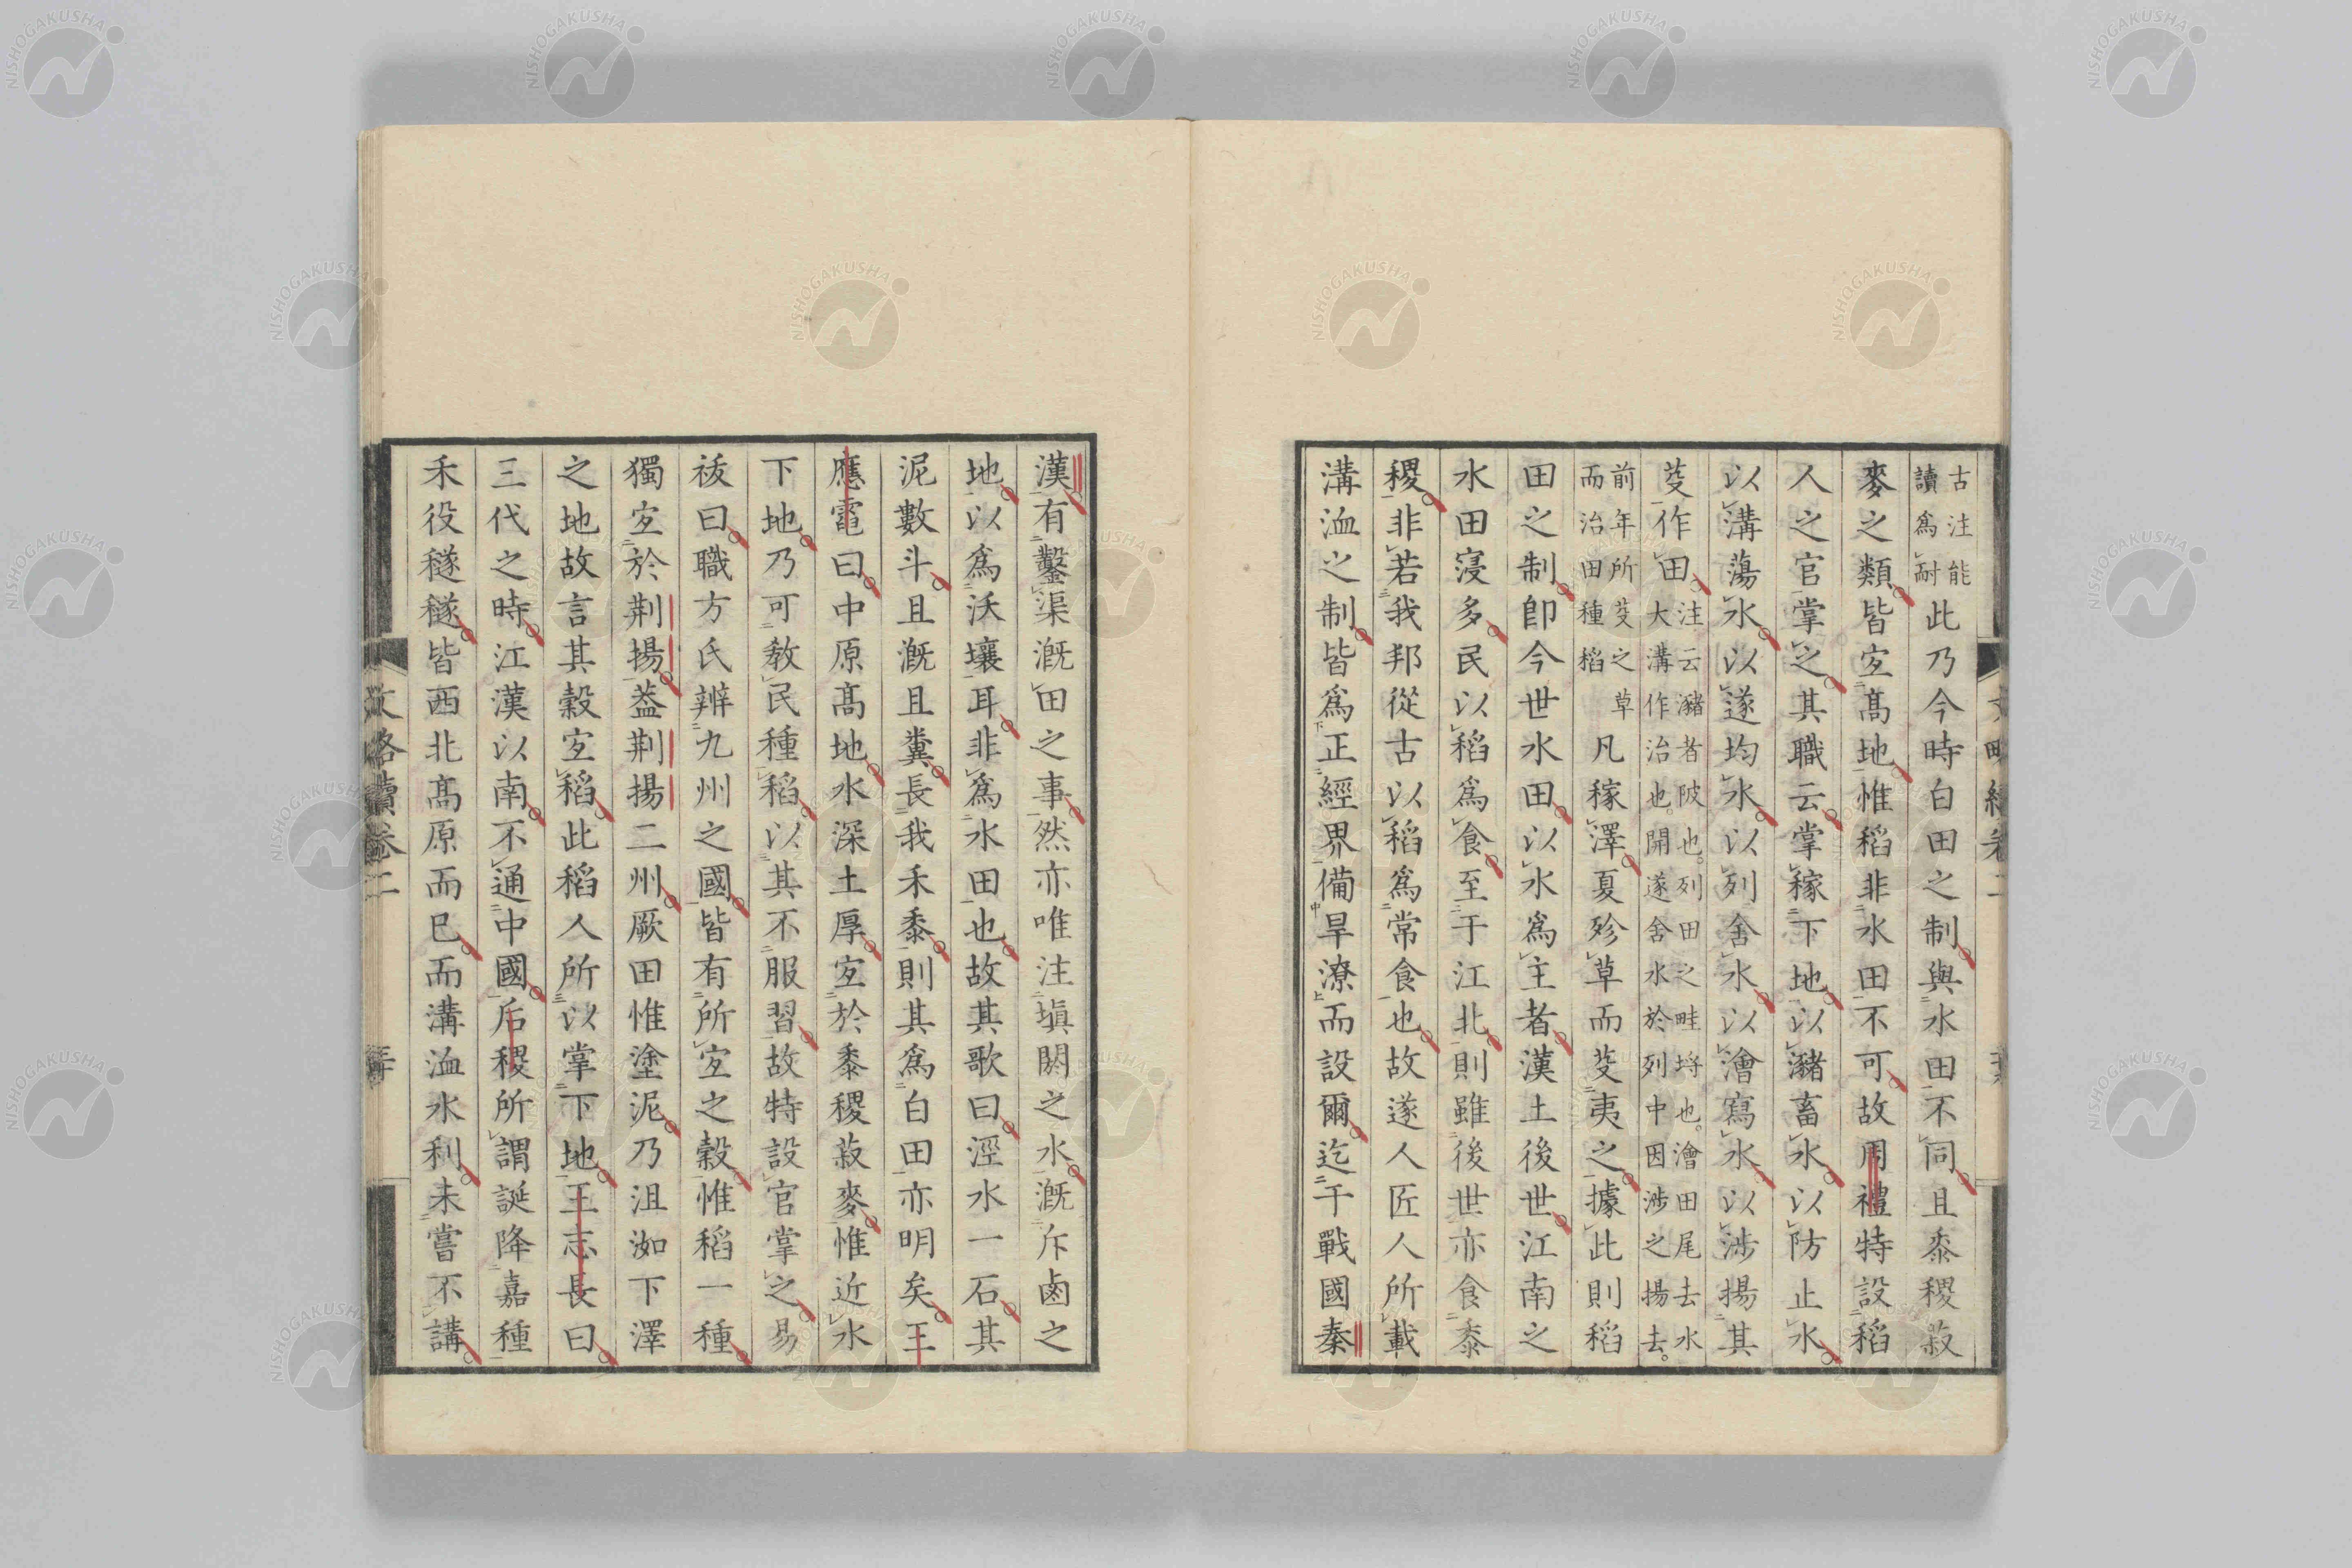 古注能讀爲耐此乃今時白田之制與水田不同且黍稷菽
麥之類皆宐髙地惟稻非水田不可故周禮特設稻
人之官掌之其職云掌稼下地以瀦畜水以防止水
以溝蕩水以遂均水以列舍水以澮寫水以涉揚其
芟作田注云瀦者陂也列田之畦埒也澮田尾去水大溝作治也開遂舍水於列中因涉之揚去
前年所芟之草而治田種稻凡稼澤夏殄草而芟夷之據此則稻
田之制卽今世水田以水爲主者漢土後世江南之
水田寖多民以稻爲食至于江北則雖後世亦食黍
稷非若我邦從古以稻爲常食也故遂人匠人所載
溝洫之制皆爲正經界備旱潦而設爾迄于戰國秦
漢有鑿渠漑田之事然亦唯注塡閼之水漑斥鹵之
地以爲沃壤耳非爲水田也故其歌曰涇水一石其
泥數斗且漑且糞長我禾黍則其爲白田亦明矣王
應電曰中原髙地水深土厚宐於黍稷菽麥惟近水
下地乃可敎民種稻以其不服習故特設官掌之易
祓曰職方氏辨九州之國皆有所宐之穀惟稻一種
獨宐於荆揚葢荆揚二州厥田惟塗泥乃沮洳下澤
之地故言其穀宐稻此稻人所以掌下地王志長曰
三代之時江漢以南不通中國后稷所謂誕降嘉種
禾役穟穟皆西北髙原而已而溝洫水利未嘗不講
NISHOGAKUSHA